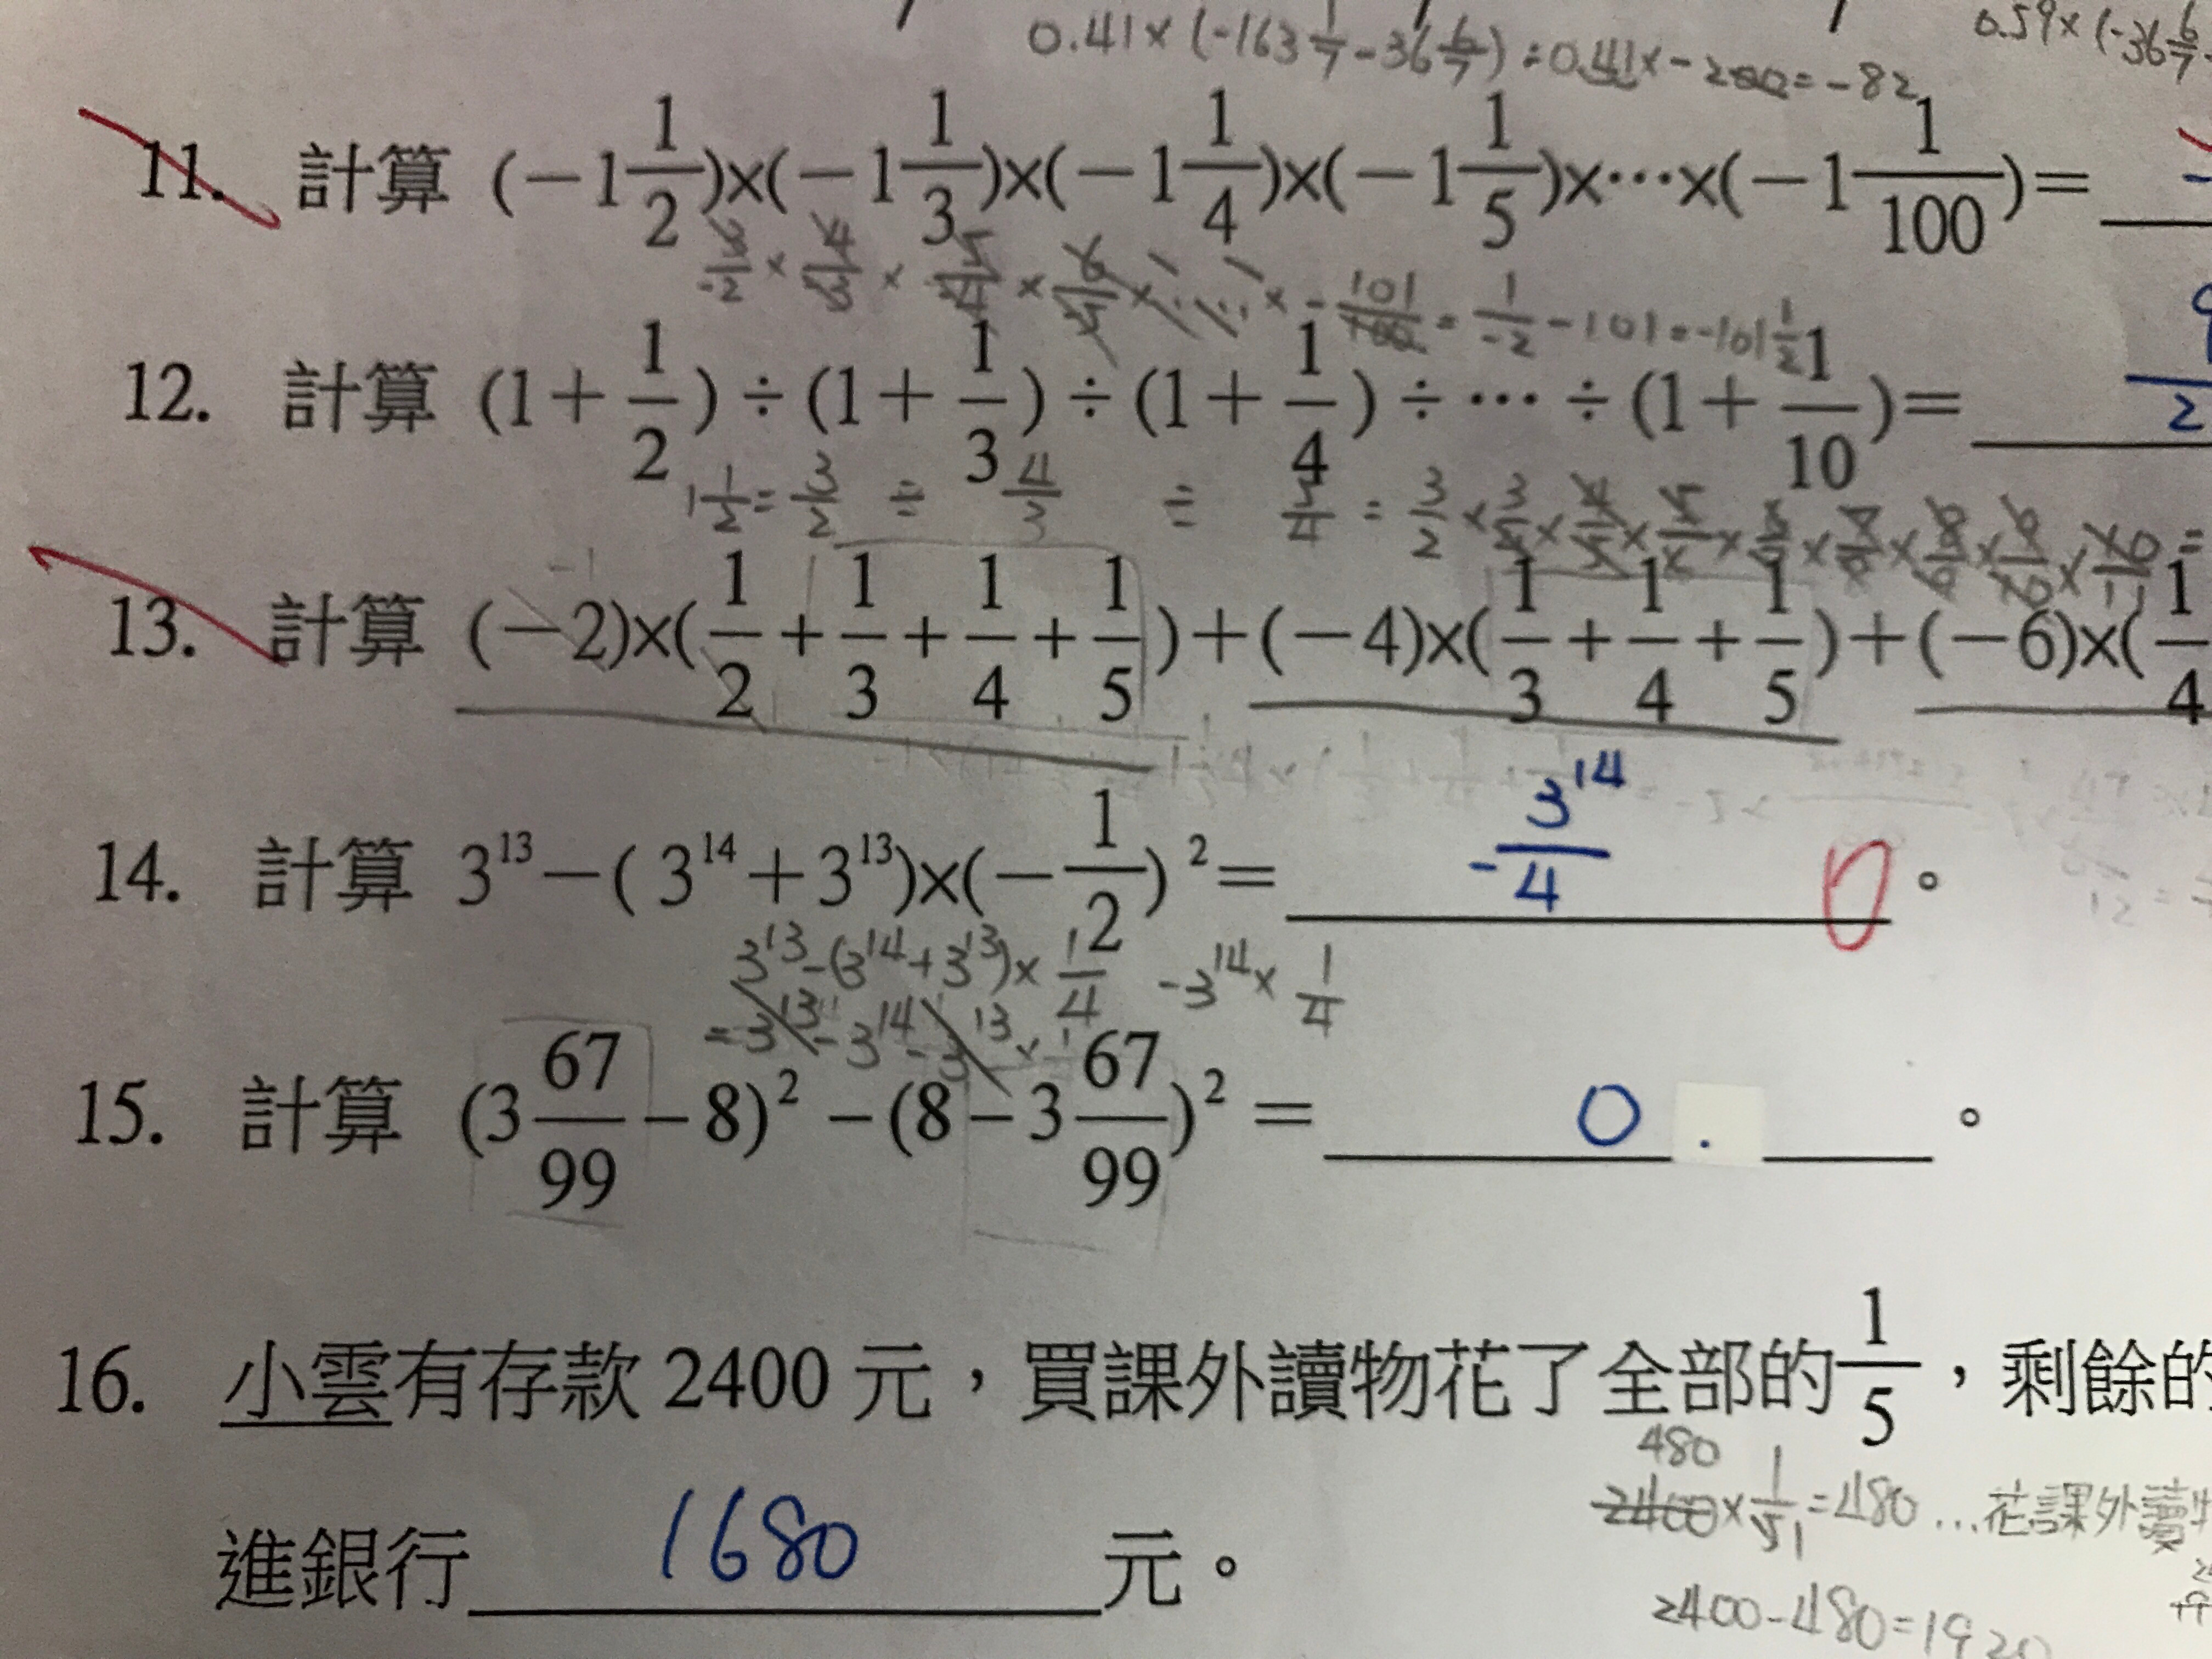 0.41×(-163 1/7 - 36 6/7) = 0.41×-200 = -82
0.59×(-36 6/7
11. 計算 (−1 1/2)×(−1 1/3)×(−1 1/4)×(−1 1/5)×⋯×(−1 1/100)=
× - 101/100 = 1/-2 - 101 = -101 1/2
12. 計算 (1+1/2)÷(1+1/3)÷(1+1/4)÷⋯÷(1+1/10)=
1 1/2 = 3/2 ÷ 4/3 ÷ 5/4 = 3/2 ×
13. 計算 (−2)×(1/2+1/3+1/4+1/5)+(−4)×(1/3+1/4+1/5)+(−6)×(1/4
14. 計算 3¹³−(3¹⁴+3¹³)×(−1/2)²= -3¹⁴/4 0 。
3¹³-(3¹⁴+3¹³)×1/4 -3¹⁴×1/4
=3¹³-3¹⁴-3¹³×
15. 計算 (3 67/99 −8)² −(8−3 67/99)² = 0 . 。
16. 小雲有存款 2400 元，買課外讀物花了全部的 1/5，剩餘的
480
2400×1/5 1=480 …花課外讀
進銀行 1680 元。
2400-480=1920